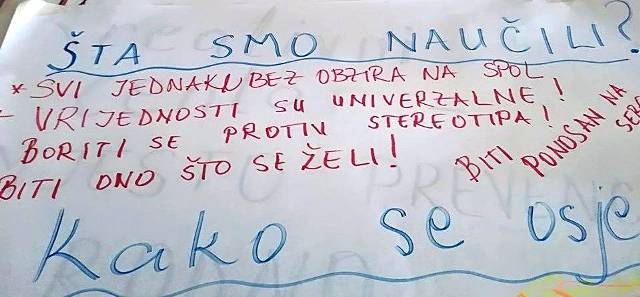 ŠTA SMO NAUČILI?
* SVI JEDNAKI BEZ OBZIRA NA SPOL
- VRIJEDNOSTI SU UNIVERZALNE!
BORITI SE PROTIV STEREOTIPA!
BITI ONO ŠTO SE ŽELI!
BITI PONOSAN NA SEBE
Kako se osje